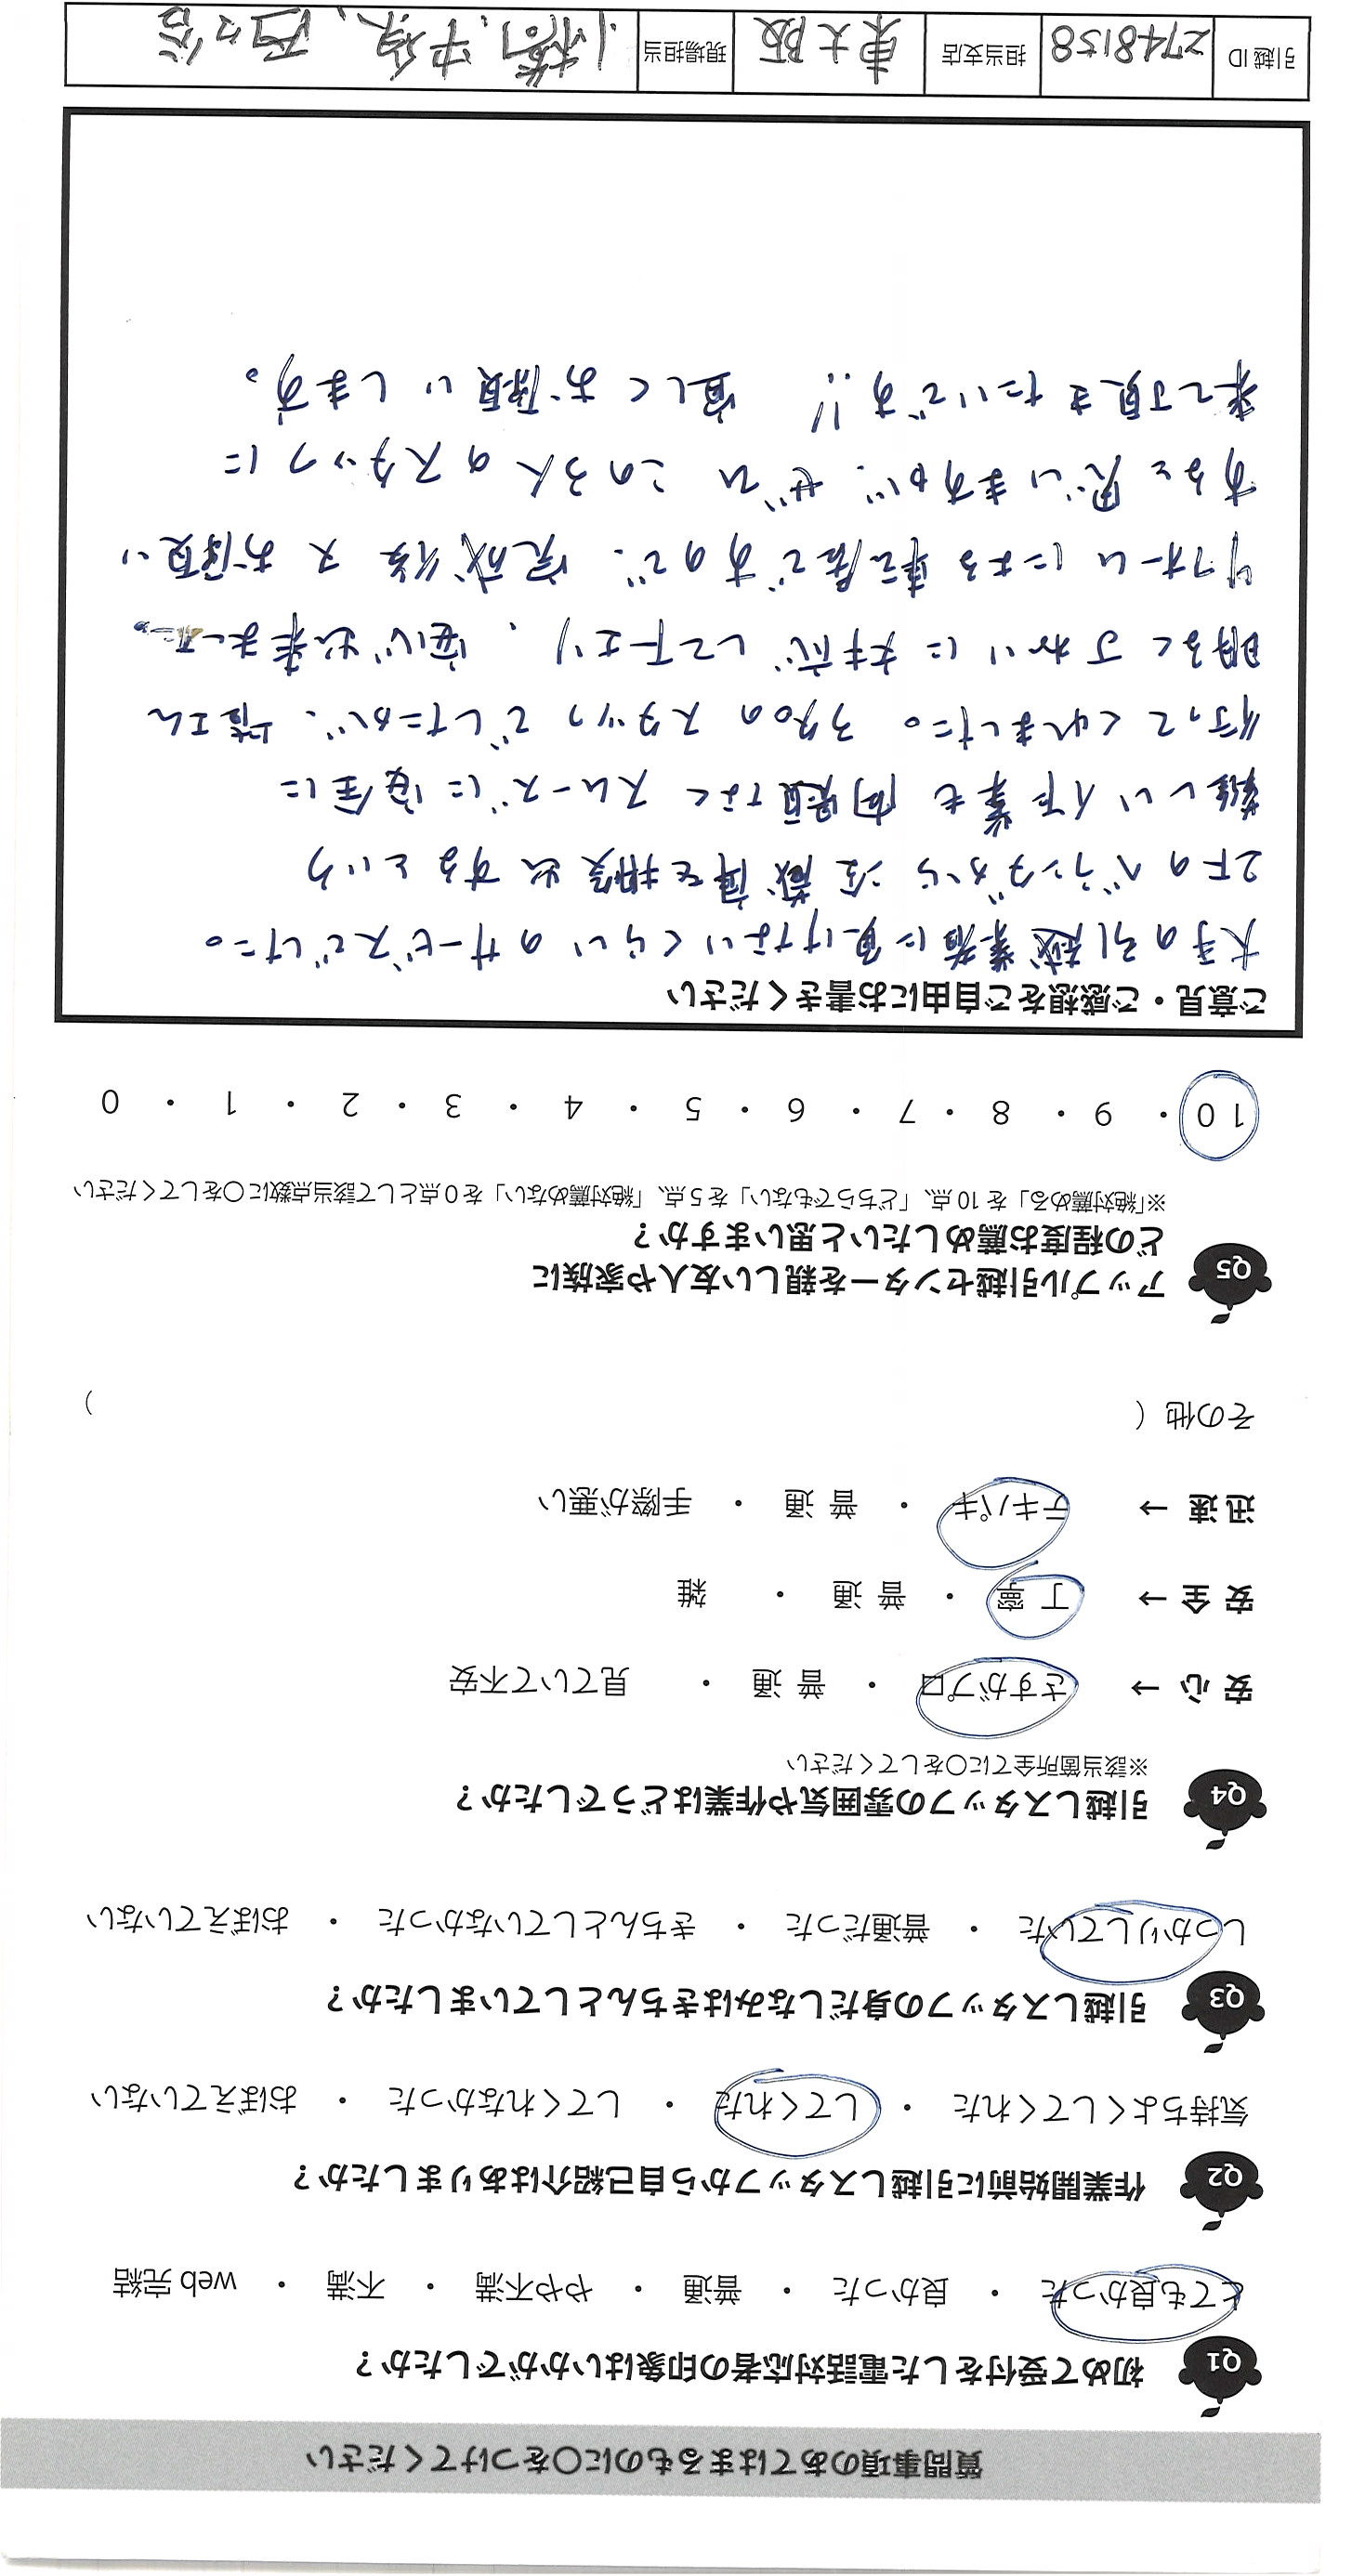 質問事項のあてはまるものに〇をつけてください
Q1 初めて受付をした電話対応者の印象はいかがでしたか？
とても良かった ・ 良かった ・ 普通 ・ やや不満 ・ 不満 ・ web 完結
Q2 作業開始前に引越しスタッフから自己紹介はありましたか？
気持ちよくしてくれた ・ してくれた ・ してくれなかった ・ おぼえていない
Q3 引越しスタッフの身だしなみはきちんとしていましたか？
しっかりしていた ・ 普通だった ・ きちんとしていなかった ・ おぼえていない
Q4 引越しスタッフの雰囲気や作業はどうでしたか？
※該当箇所全てに〇をしてください
安 心 → さすがプロ ・ 普 通 ・ 見ていて不安
安 全 → 丁 寧 ・ 普 通 ・ 雑
迅 速 → テキパキ ・ 普 通 ・ 手際が悪い
その他（ ）
Q5 アップル引越センターを親しい友人や家族に
どの程度お薦めしたいと思いますか？
※「絶対薦める」を 10 点、「どちらでもない」を 5 点、「絶対薦めない」を 0 点として該当点数に〇をしてください
10 ・ 9 ・ 8 ・ 7 ・ 6 ・ 5 ・ 4 ・ 3 ・ 2 ・ 1 ・ 0
ご意見・ご感想をご自由にお書きください
大手の引越業者に負けないくらいのサービスでした。
2Fのベランダから冷蔵庫を搬出するという
難しい作業も問題なくスムーズに安全に
行ってくれました。3名のスタッフでしたが、皆さん
明るく丁ねいに対応して下さり、安心出来ました。
リフォームによる転居ですので、完成後又お願い
すると思いますが、ぜひこの3人のスタッフに
来て頂きたいです!! 宜しくお願いします。
引越 ID 2748158 担当支店 東大阪 現場担当 小橋、中泉、西々谷